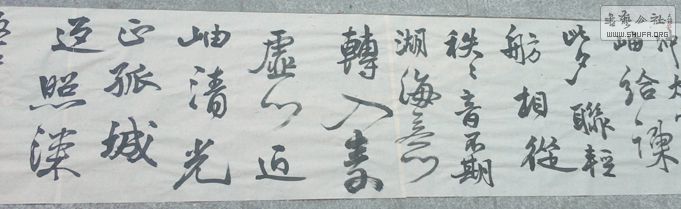 書藝公社
WWW.SHUFA.ORG
岫給諫
此夕聯輕
舫相從
秩〻音不期
湖海意
轉入
虛心近
岫清光
正孤城
照深